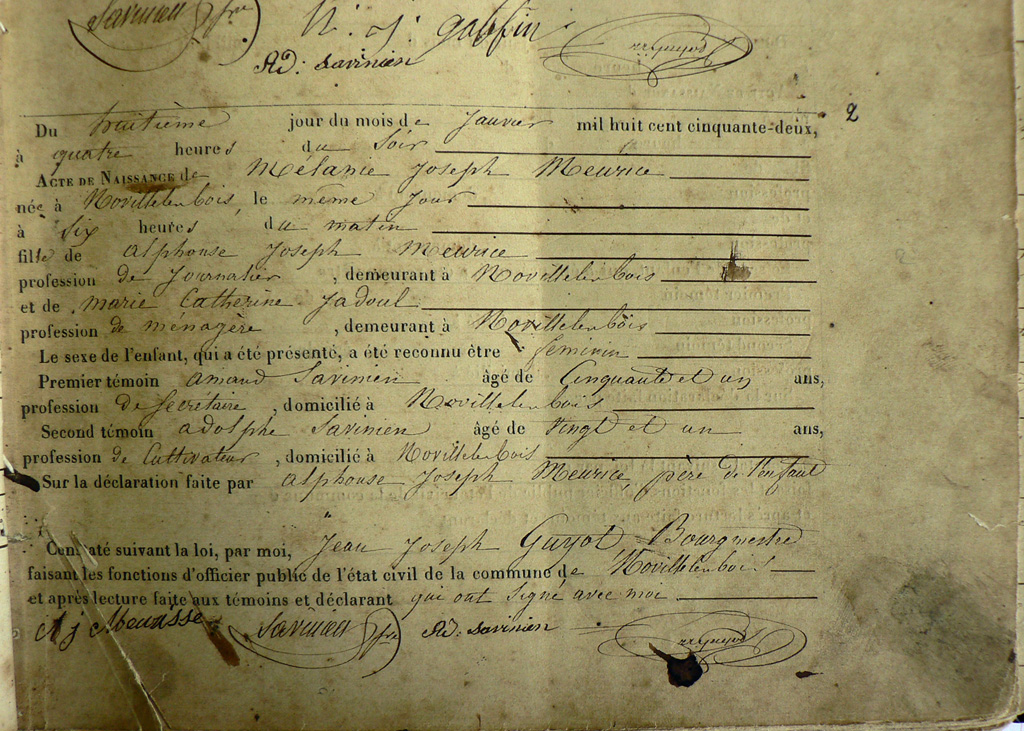 Savinien
N. j. gaffin
Ad: Savinien
2
Du huitième jour du mois de Janvier mil huit cent cinquante-deux,
à quatre heures du Soir
ACTE DE NAISSANCE de Mélanie Joseph Meurice
née à Novillelenbois, le même Jour
à Six heures du matin
fille de alphonse Joseph Meurice
profession de Journalier, demeurant à Novillelenbois
et de marie Catherine Jadoul
profession de ménagère, demeurant à Novillelenbois
Le sexe de l'enfant, qui a été présenté, a été reconnu être féminin
Premier témoin amand Savinien âgé de Cinquante et un ans,
profession de Secrétaire, domicilié à Novillelenbois
Second témoin adolphe Savinien âgé de Vingt et un ans,
profession de Cultivateur, domicilié à Novillelenbois
Sur la déclaration faite par alphonse Joseph Meurice père de l'enfant
Constaté suivant la loi, par moi, Jean Joseph Guyot Bourgmestre
faisant les fonctions d'officier public de l'état civil de la commune de Novillelenbois
et après lecture faite aux témoins et déclarant qui ont signé avec moi
A j Meurisse Savinien Ad: Savinien